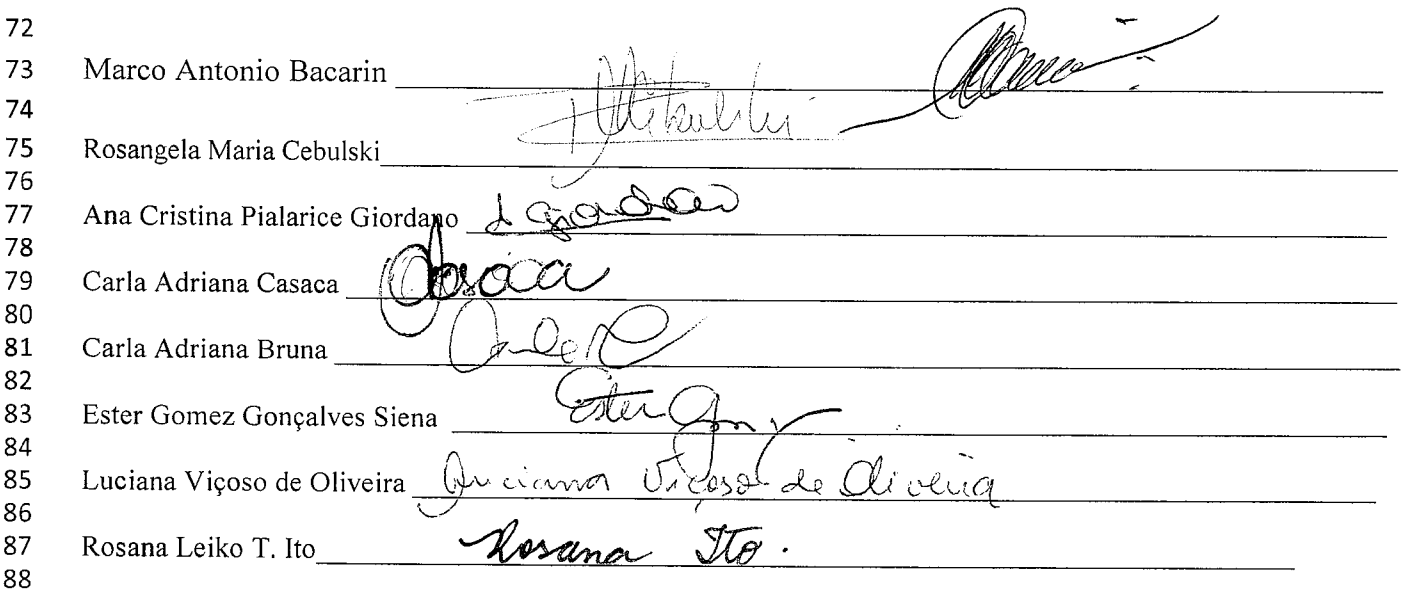 72
73 Marco Antonio Bacarin
74
75 Rosangela Maria Cebulski
76
77 Ana Cristina Pialarice Giordano
78
79 Carla Adriana Casaca Casaca
80
81 Carla Adriana Bruna
82
83 Ester Gomez Gonçalves Siena Ester
84
85 Luciana Viçoso de Oliveira Luciana Viçoso de Oliveira
86
87 Rosana Leiko T. Ito Rosana Ito.
88